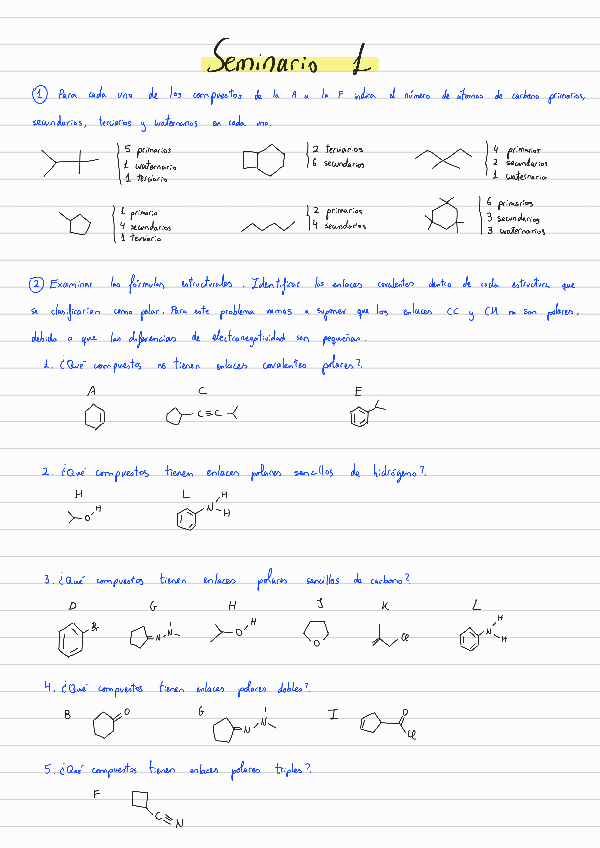 Seminario 1
① Para cada uno de los compuestos de la A a la F indica el número de átomos de carbono primarios,
secundarios, terciarios y cuaternarios en cada uno.
5 primarios
1 cuaternario
1 terciario
2 terciarios
6 secundarios
4 primarios
2 secundarios
1 cuaternario
1 primario
4 secundarios
1 terciario
2 primarios
4 secundarios
6 primarios
3 secundarios
3 cuaternarios
② Examinar las fórmulas estructurales. Identificar los enlaces covalentes dentro de cada estructura que
se clasificarían como polar. Para este problema vamos a suponer que los enlaces CC y CH no son polares,
debido a que las diferencias de electronegatividad son pequeñas.
1. ¿Qué compuestos no tienen enlaces covalentes polares?
A C E
C≡C
2. ¿Qué compuestos tienen enlaces polares sencillos de hidrógeno?
H L
O H N H H
3. ¿Qué compuestos tienen enlaces polares sencillos de carbono?
D G H J K L
Br N N O H O Cl N H H
4. ¿Qué compuestos tienen enlaces polares dobles?
B G I
O N N O Cl
5. ¿Qué compuestos tienen enlaces polares triples?
F
C≡N